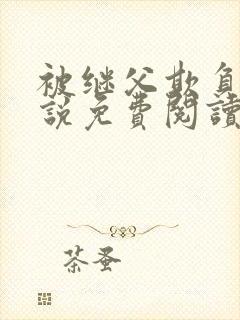 被继父欺负
說免費閱讀
茶蚤